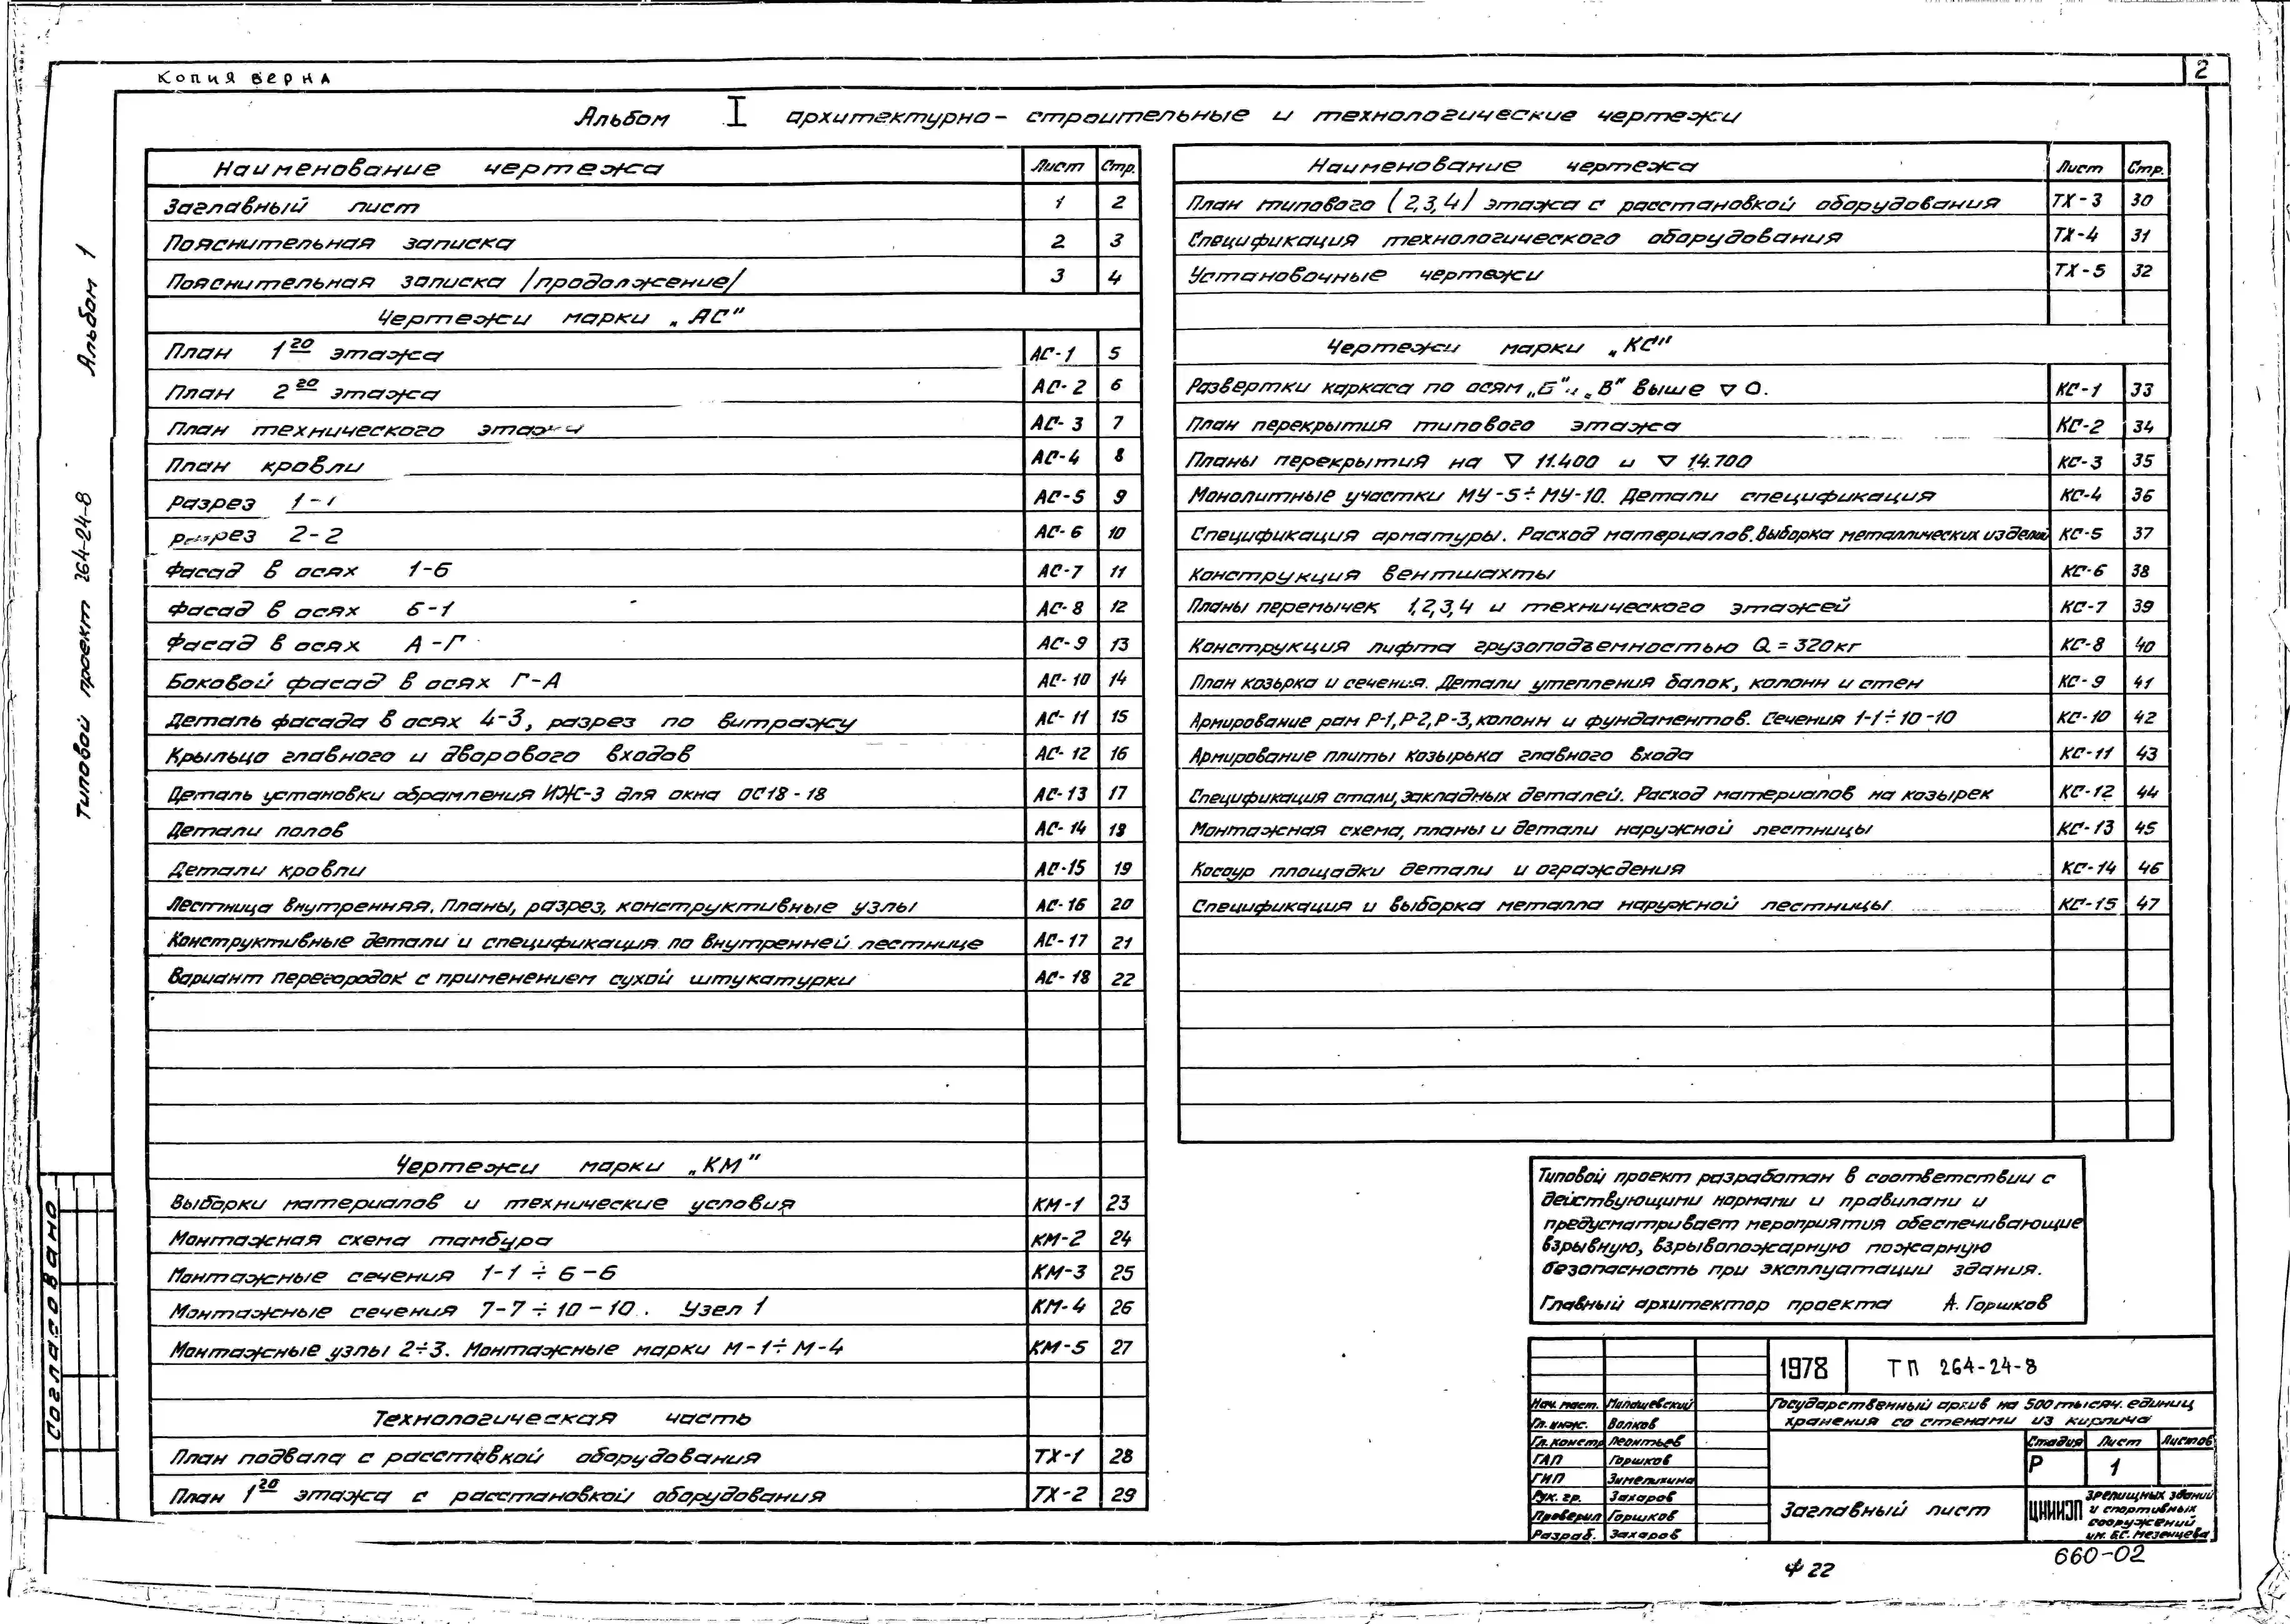 Копия верна
2
Альбом I архитектурно-строительные и технологические чертежи
Альбом 1
Типовой проект 264-24-8
Согласовано
Наименование чертежа Лист Стр.
Заглавный лист 1 2
Пояснительная записка 2 3
Пояснительная записка /продолжение/ 3 4
Чертежи марки „АС"
План 1го этажа АС-1 5
План 2го этажа АС-2 6
План технического этажа АС-3 7
План кровли АС-4 8
Разрез 1-1 АС-5 9
Разрез 2-2 АС-6 10
Фасад в осях 1-6 АС-7 11
Фасад в осях 6-1 АС-8 12
Фасад в осях А-Г АС-9 13
Боковой фасад в осях Г-А АС-10 14
Деталь фасада в осях 4-3, разрез по витражу АС-11 15
Крыльцо главного и дворового входов АС-12 16
Деталь установки обрамления ИЖ-3 для окна ОС18-18 АС-13 17
Детали полов АС-14 18
Детали кровли АС-15 19
Лестница внутренняя. Планы, разрез, конструктивные узлы АС-16 20
Конструктивные детали и спецификация по внутренней лестнице АС-17 21
Вариант перегородок с применением сухой штукатурки АС-18 22
Чертежи марки „КМ"
Выборки материалов и технические условия КМ-1 23
Монтажная схема тамбура КМ-2 24
Монтажные сечения 1-1 ÷ 6-6 КМ-3 25
Монтажные сечения 7-7 ÷ 10-10. Узел 1 КМ-4 26
Монтажные узлы 2÷3. Монтажные марки М-1÷М-4 КМ-5 27
Технологическая часть
План подвала с расстановкой оборудования ТХ-1 28
План 1го этажа с расстановкой оборудования ТХ-2 29
Наименование чертежа Лист Стр.
План типового (2,3,4) этажа с расстановкой оборудования ТХ-3 30
Спецификация технологического оборудования ТХ-4 31
Установочные чертежи ТХ-5 32
Чертежи марки „КС"
Развертки каркаса по осям „Б" и „В" выше ▽ 0. КС-1 33
План перекрытия типового этажа КС-2 34
Планы перекрытия на ▽ 11.400 и ▽ 14.700 КС-3 35
Монолитные участки МУ-5÷МУ-10. Детали спецификация КС-4 36
Спецификация арматуры. Расход материалов. Выборка металлических изделий КС-5 37
Конструкция вентшахты КС-6 38
Планы перемычек 1,2,3,4 и технического этажей КС-7 39
Конструкция лифта грузоподъемностью Q=320кг КС-8 40
План козырка и сечения. Детали утепления балок, колонн и стен КС-9 41
Армирование рам Р-1, Р-2, Р-3, колонн и фундаментов. Сечения 1-1÷10-10 КС-10 42
Армирование плиты козырька главного входа КС-11 43
Спецификация стали, закладных деталей. Расход материалов на козырек КС-12 44
Монтажная схема, планы и детали наружной лестницы КС-13 45
Косоур площадки детали и ограждения КС-14 46
Спецификация и выборка металла наружной лестницы КС-15 47
Типовой проект разработан в соответствии с
действующими нормами и правилами и
предусматривает мероприятия обеспечивающие
взрывную, взрывопожарную пожарную
безопасность при эксплуатации здания.
Главный архитектор проекта А. Горшков
1978 ТП 264-24-8
Нач. маст. Милашевский
Гл. инж. Волков
Гл. констр Леонтьев
ГАП Горшков
ГИП Зимелихина
Рук. гр. Захаров
Проверил Горшков
Разраб. Захаров
Государственный архив на 500 тысяч. единиц
хранения со стенами из кирпича
Стадия Лист Листов
Р 1
Заглавный лист
ЦНИИЭП зрелищных зданий
и спортивных
сооружений
им. Б.С. Мезенцева
660-02
ф 22